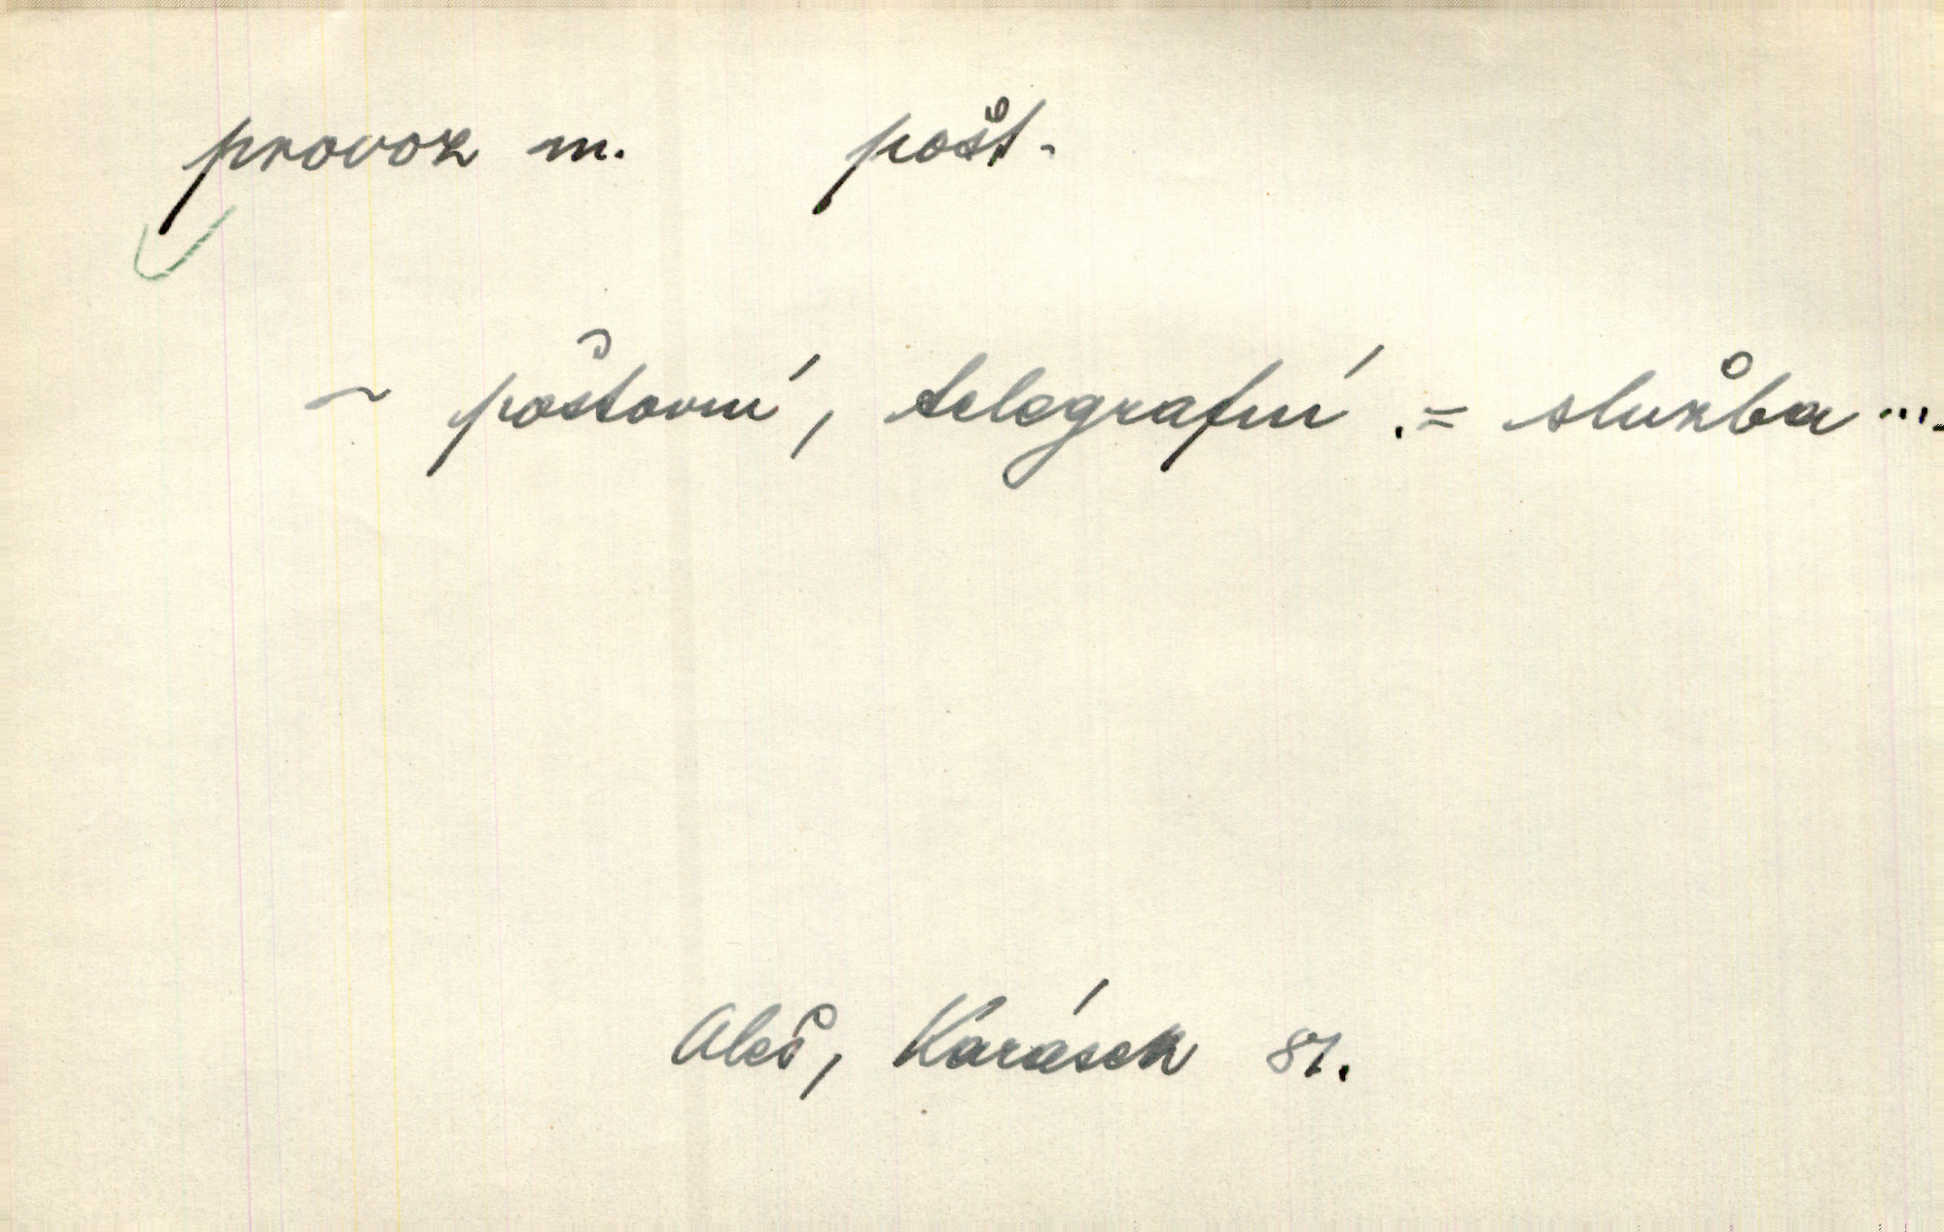 provoz m. pošt.
~ poštovní, telegrafní .= služba ....
Aleš, Karásek 87.